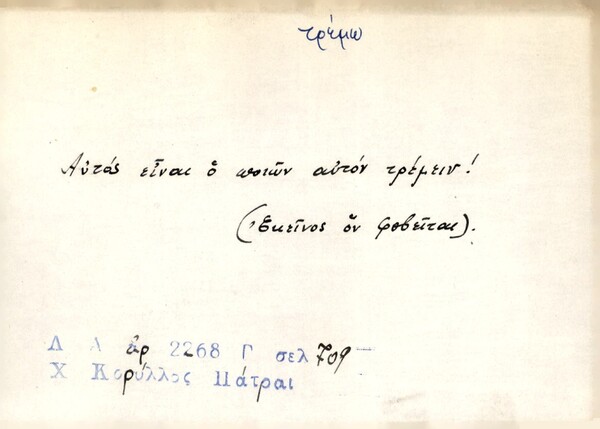 τρέμω
Αὐτός εἶναι ὁ ποιῶν αὐτόν τρέμειν!
(Ἐκεῖνος ὅν φοβεῖται).
Λ Α ἀρ 2268 Γ σελ 709
Χ Κορύλλος Πάτραι